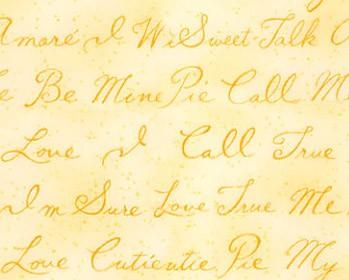 Amaré I Wi Sweet Talk
e Be Mine Pie Call M
Love I Call True
I'm Sure Love True Me
Love Cutientie Pie My